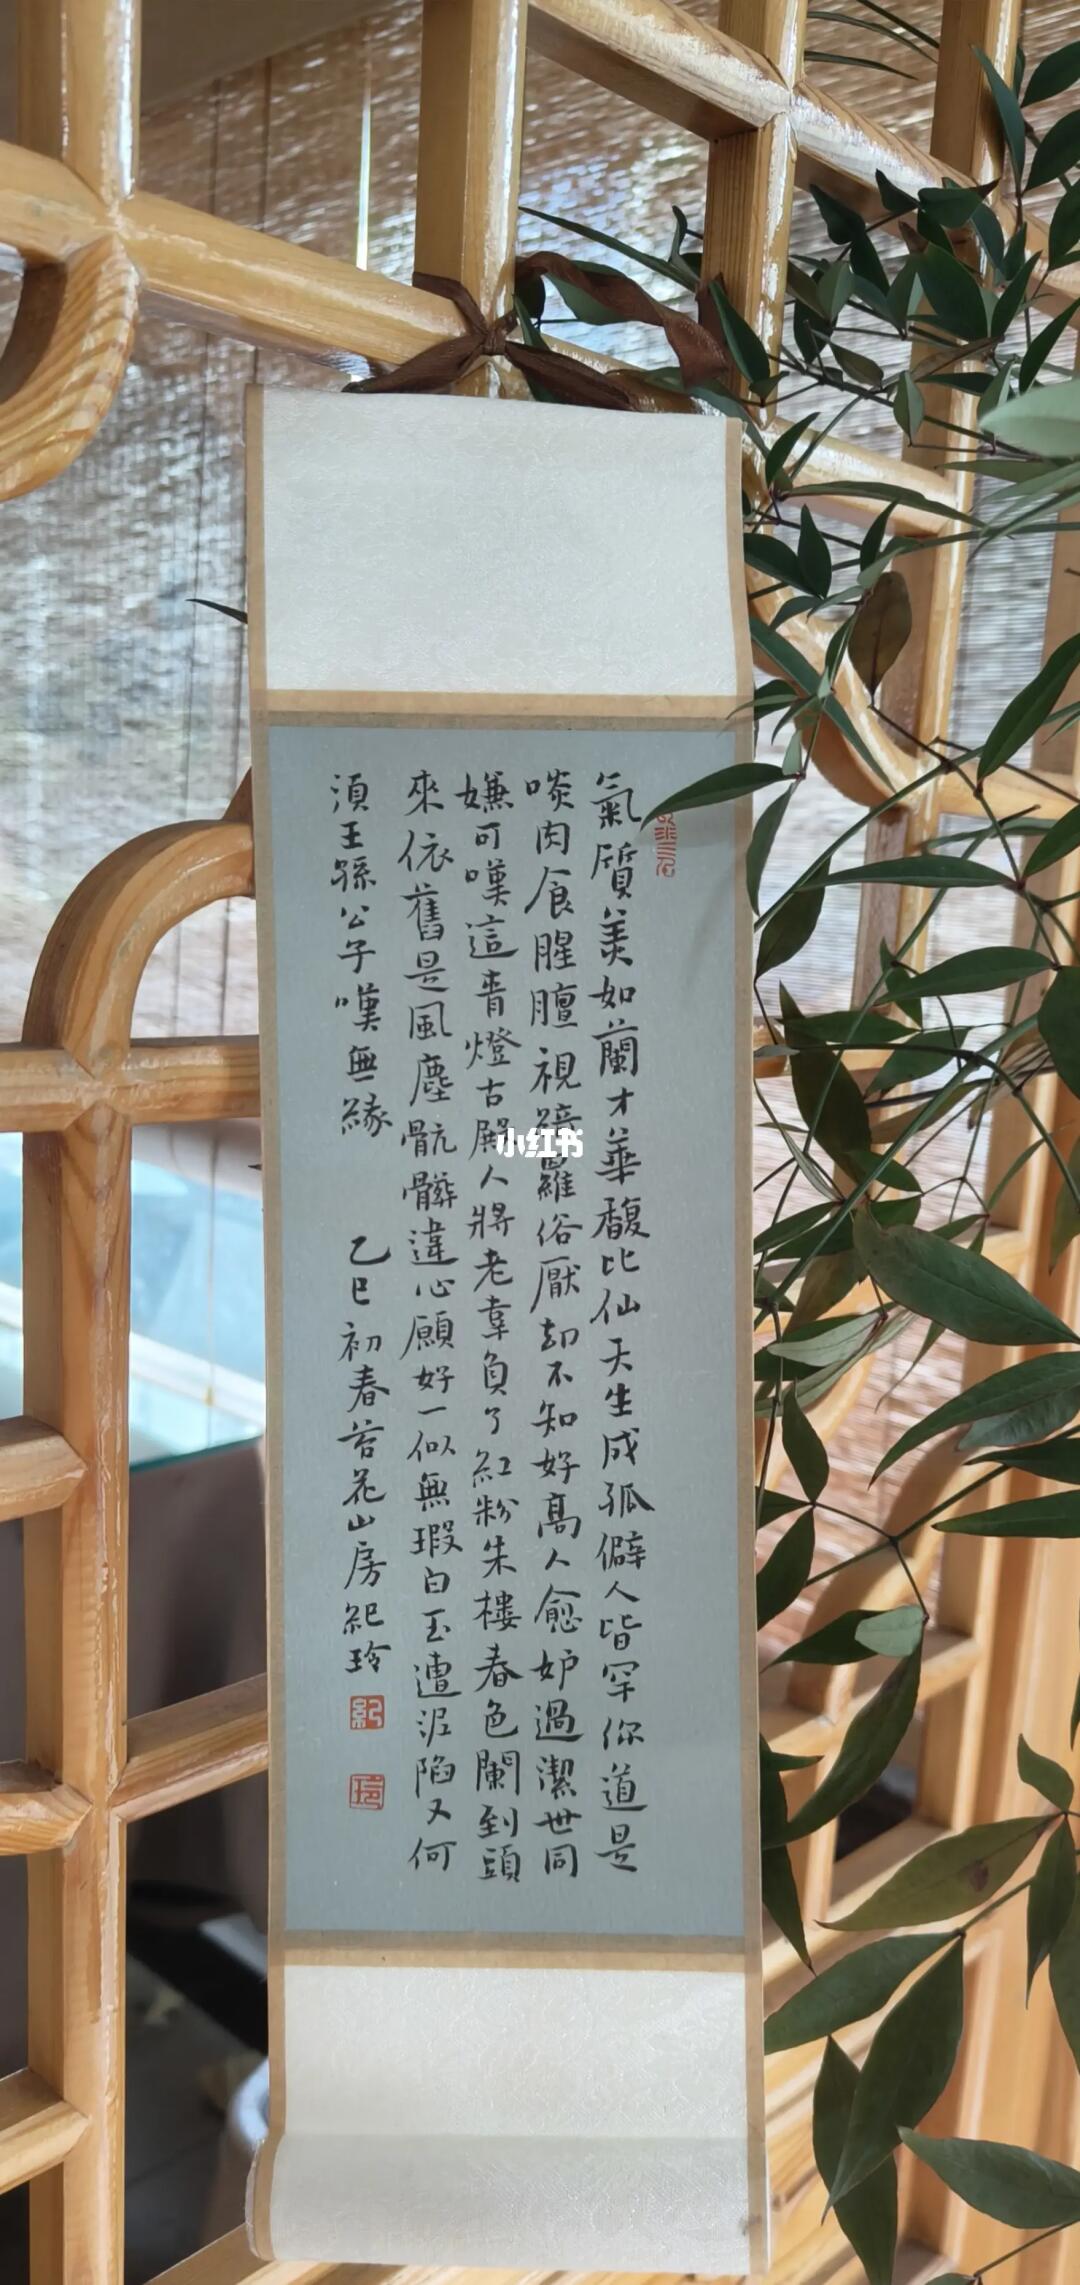 氣質美如蘭才華馥比仙天生成孤僻人皆罕你道是
啖肉食腥膻視羅俗厭却不知好高人愈妒過潔世同
嫌可嘆這青燈古殿人將老辜負了紅粉朱樓春色闌到頭
來依舊是風塵骯髒違心願好一似無瑕白玉遭泥陷又何
須王孫公子嘆無緣
乙巳初春苔花山房紀玲
紀
玲
小红书